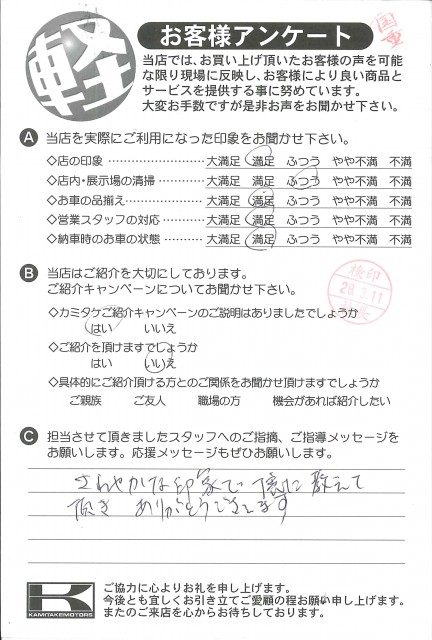 軽
お客様アンケート
国重
当店では、お買い上げ頂いたお客様の声を可能
な限り現場に反映し、お客様により良い商品と
サービスを提供する事に努めています。
大変お手数ですが是非お声をお聞かせ下さい。
A 当店を実際にご利用になった印象をお聞かせ下さい。
◇店の印象 ………………… 大満足 満足 ふつう やや不満 不満
◇店内・展示場の清掃 ………… 大満足 満足 ふつう やや不満 不満
◇お車の品揃え ……………… 大満足 満足 ふつう やや不満 不満
◇営業スタッフの対応 ………… 大満足 満足 ふつう やや不満 不満
◇納車時のお車の状態 ………… 大満足 満足 ふつう やや不満 不満
B 当店はご紹介を大切にしております。
ご紹介キャンペーンについてお聞かせ下さい。
検印
28.3.11
◇カミタケご紹介キャンペーンのご説明はありましたでしょうか
はい いいえ
◇ご紹介を頂けますでしょうか
はい いいえ
◇具体的にご紹介頂ける方とのご関係をお聞かせ頂けますでしょうか
ご親族 ご友人 職場の方 機会があれば紹介したい
C 担当させて頂きましたスタッフへのご指摘、ご指導メッセージを
お願いします。応援メッセージもぜひお願いします。
さわやかな印象で 丁寧に 教えて
頂き ありがとうございます
K
KAMITAKEMOTORS
ご協力に心よりお礼を申し上げます。
今後とも宜しくお引き立てご愛顧の程お願い申し上げます。
またのご来店を心からお待ちしております。